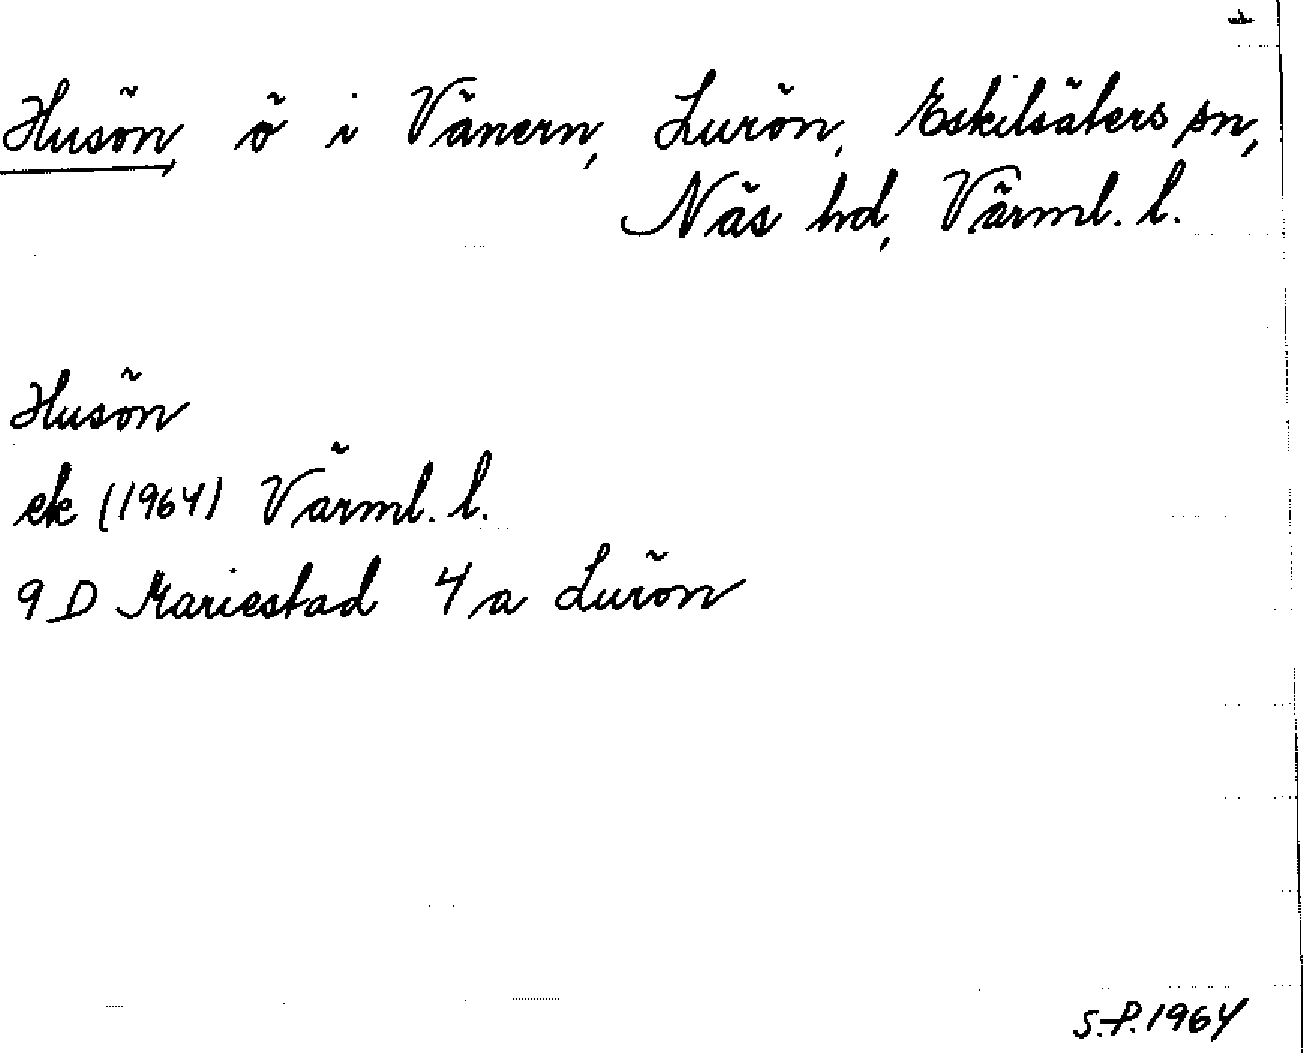 Husön, ö i Vänern, Lurön, Eskilsäters sn,
Näs hd, Värml. l.
Husön
ek (1964) Värml. l.
9D Mariestad 4a Lurön
S.P. 1964